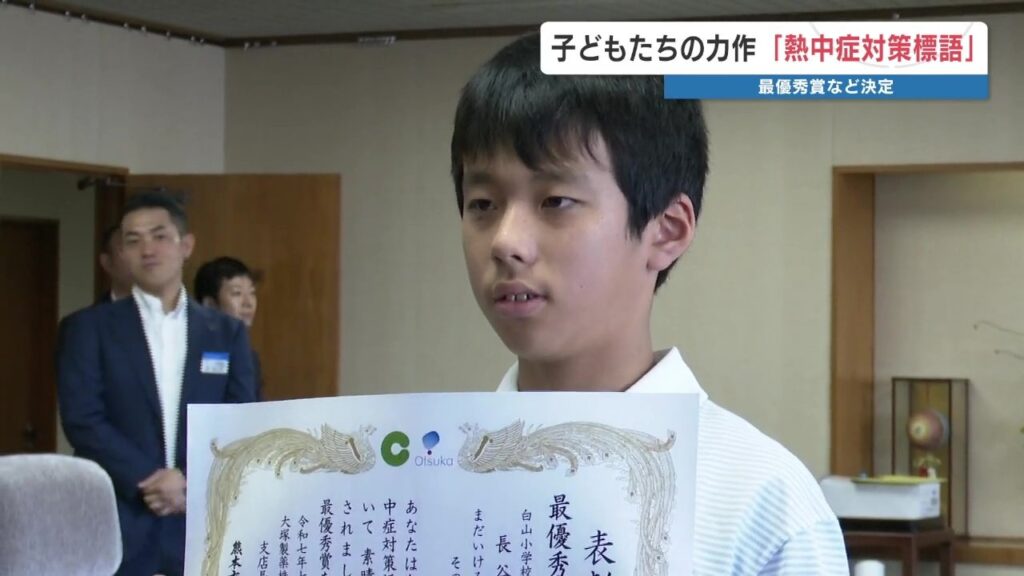 子どもたちの力作 「熱中症対策標語」
最優秀賞など決定
Otsuka
表
最優秀
白山小学校
長谷
まだいける
その
あなたは
中症対策
いて 素晴
されまし
最優秀賞を
令和七年七
大塚製薬株
支店長
熊本